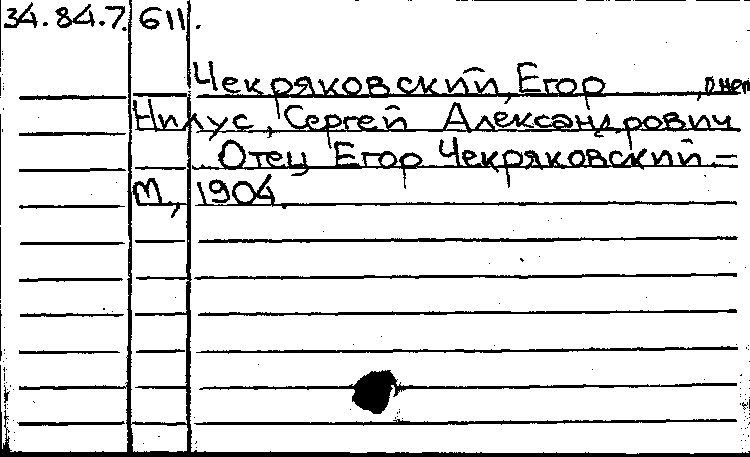 34.84.7.611.
Чекряковский, Егор, о нем
Нилус, Сергей Александрович
Отец Егор Чекряковский –
М., 1904.